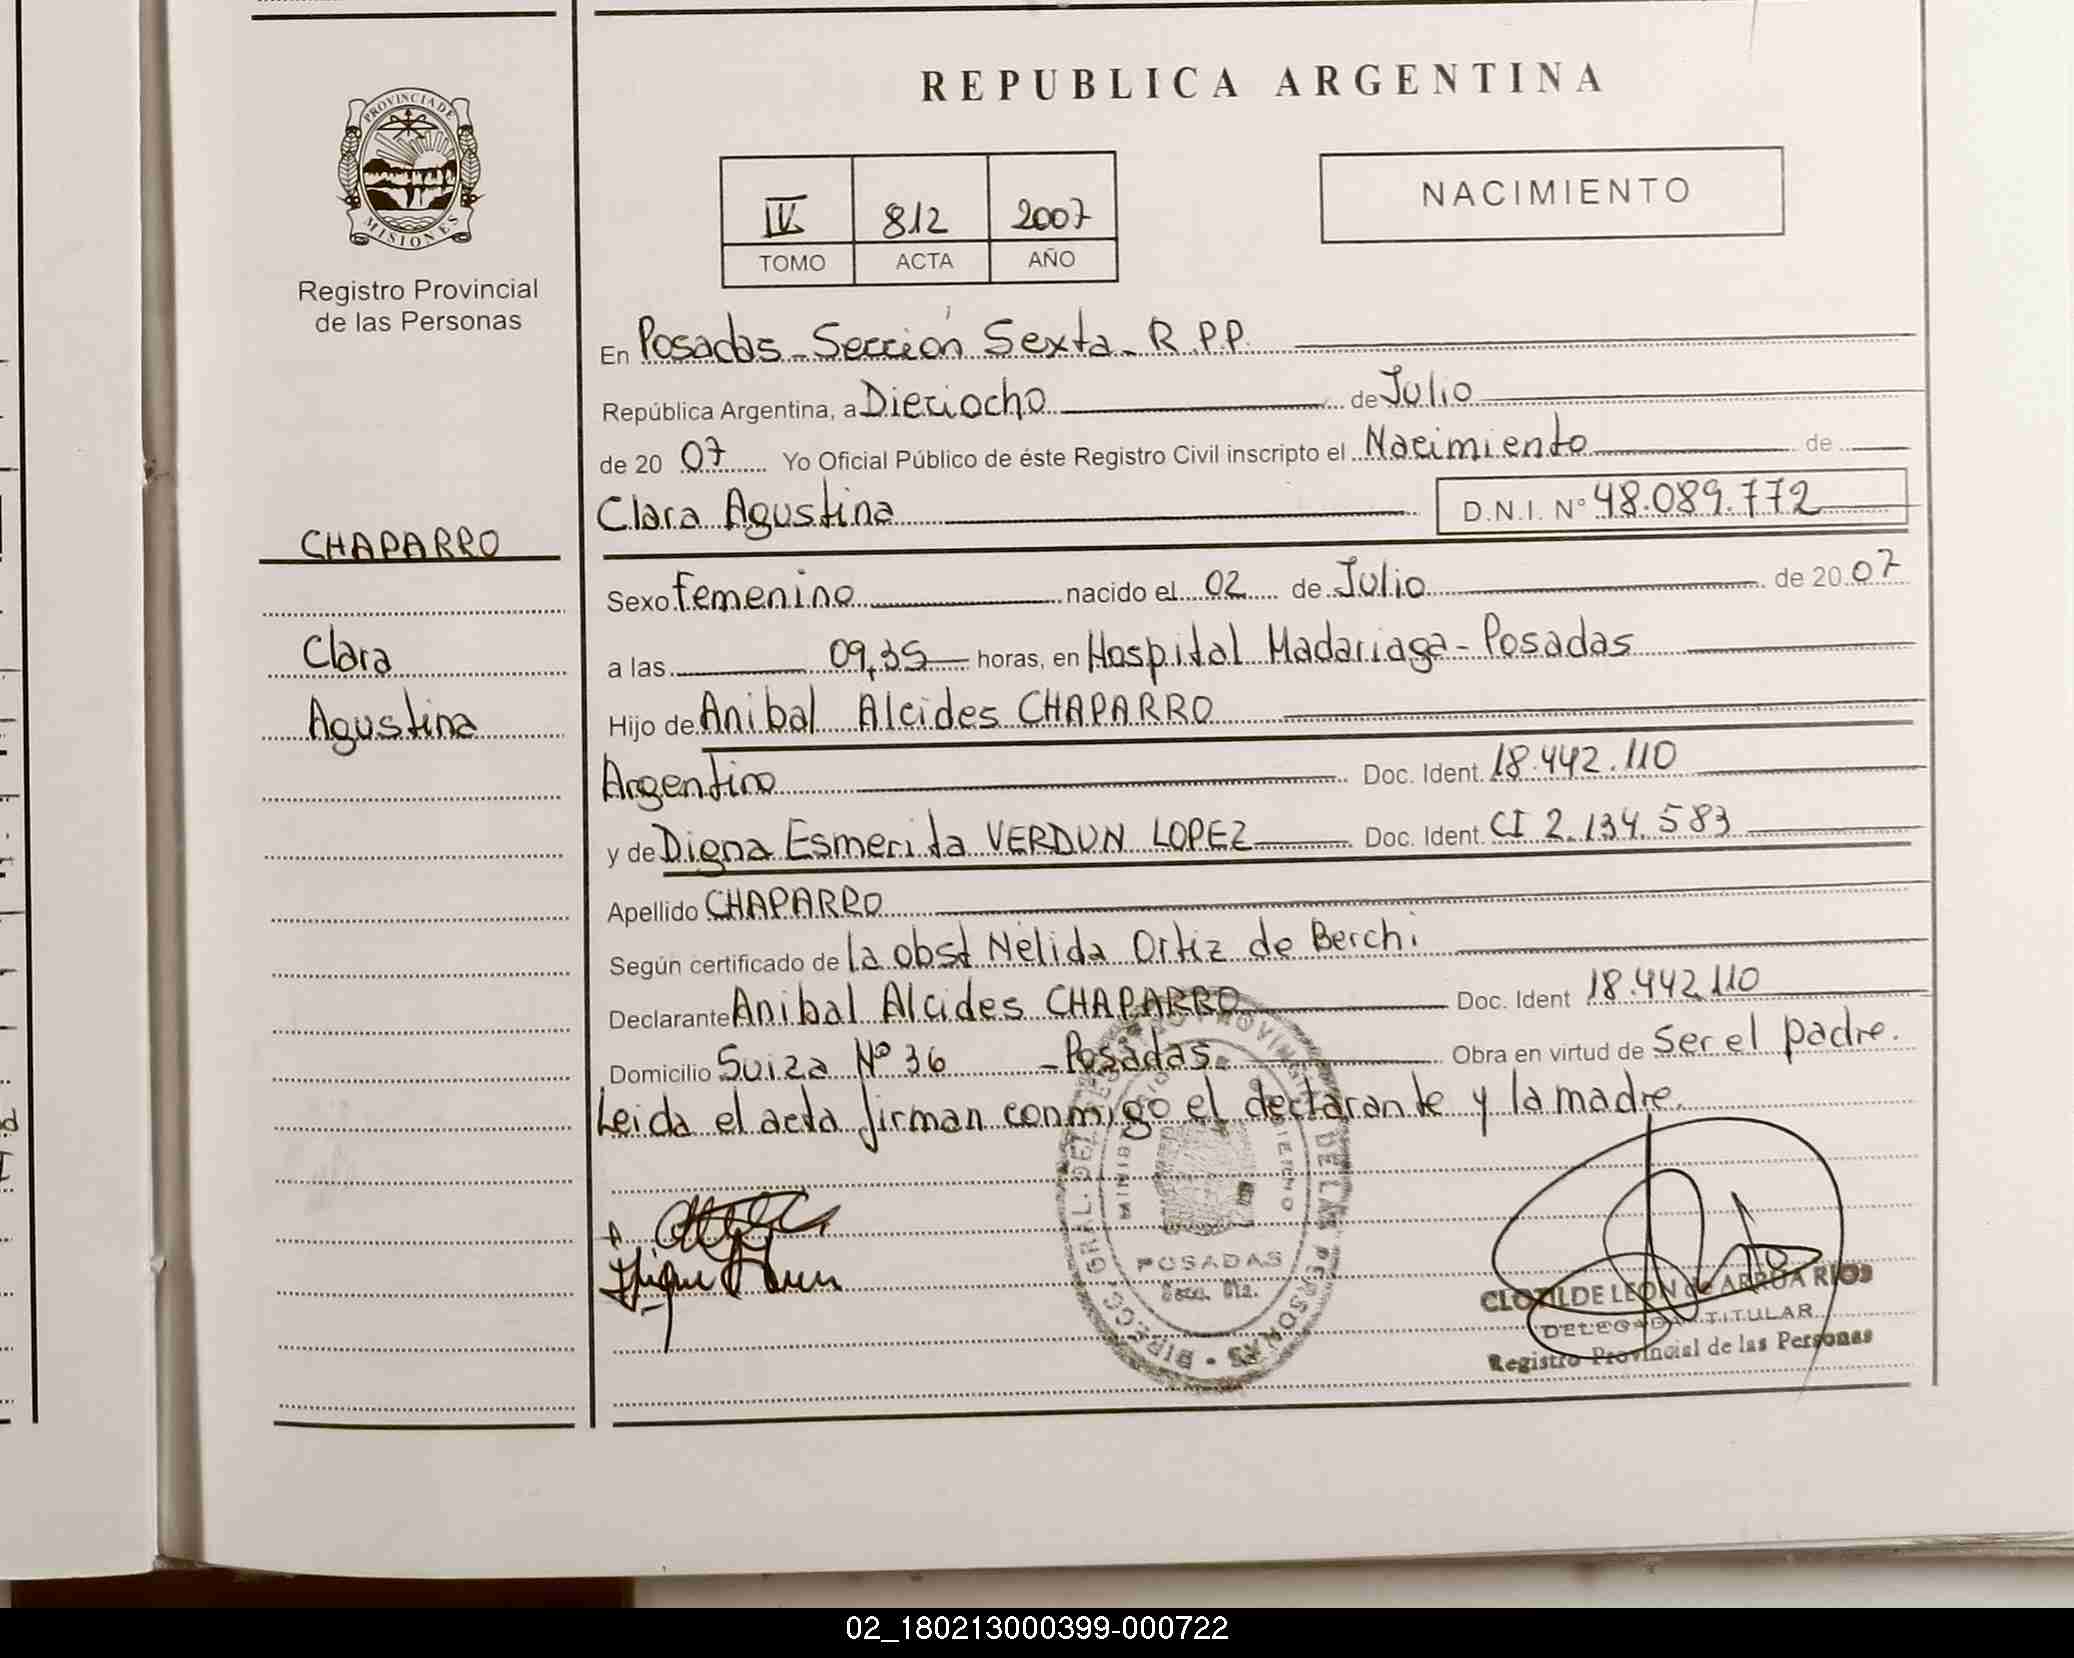 REPUBLICA ARGENTINA
PROVINCIA DE
MISIONES
Registro Provincial
de las Personas
IV 812 2007
TOMO ACTA AÑO
NACIMIENTO
En Posadas - Sección Sexta - R.P.P.
República Argentina, a Dieciocho de Julio
de 20 07 Yo Oficial Público de éste Registro Civil inscripto el Nacimiento de
Clara Agustina D.N.I. Nº 48.089.772
CHAPARRO
Clara
Agustina
Sexo femenino nacido el 02 de Julio de 20 07
a las 09,35 horas, en Hospital Madariaga - Posadas
Hijo de Anibal Alcides CHAPARRO
Argentino Doc. Ident. 18.442.110
y de Digna Esmerita VERDUN LOPEZ Doc. Ident. CI 2.134.583
Apellido CHAPARRO
Según certificado de la obst Nélida Ortiz de Berchi
Declarante Anibal Alcides CHAPARRO Doc. Ident 18.442.110
Domicilio Suiza Nº 36 - Posadas. Obra en virtud de Ser el padre.
Leida el acta firman conmigo el declarante y la madre.
POSADAS
CLOTILDE LEON de ARRUA RIOS
DELEGADA TITULAR
Registro Provincial de las Personas
02_180213000399-000722